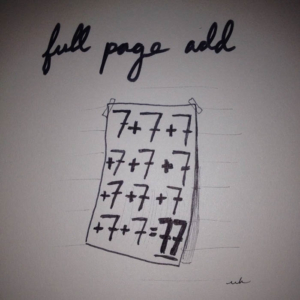 full page add
7+7+7
+7+7+7
+7+7+7
+7+7=77